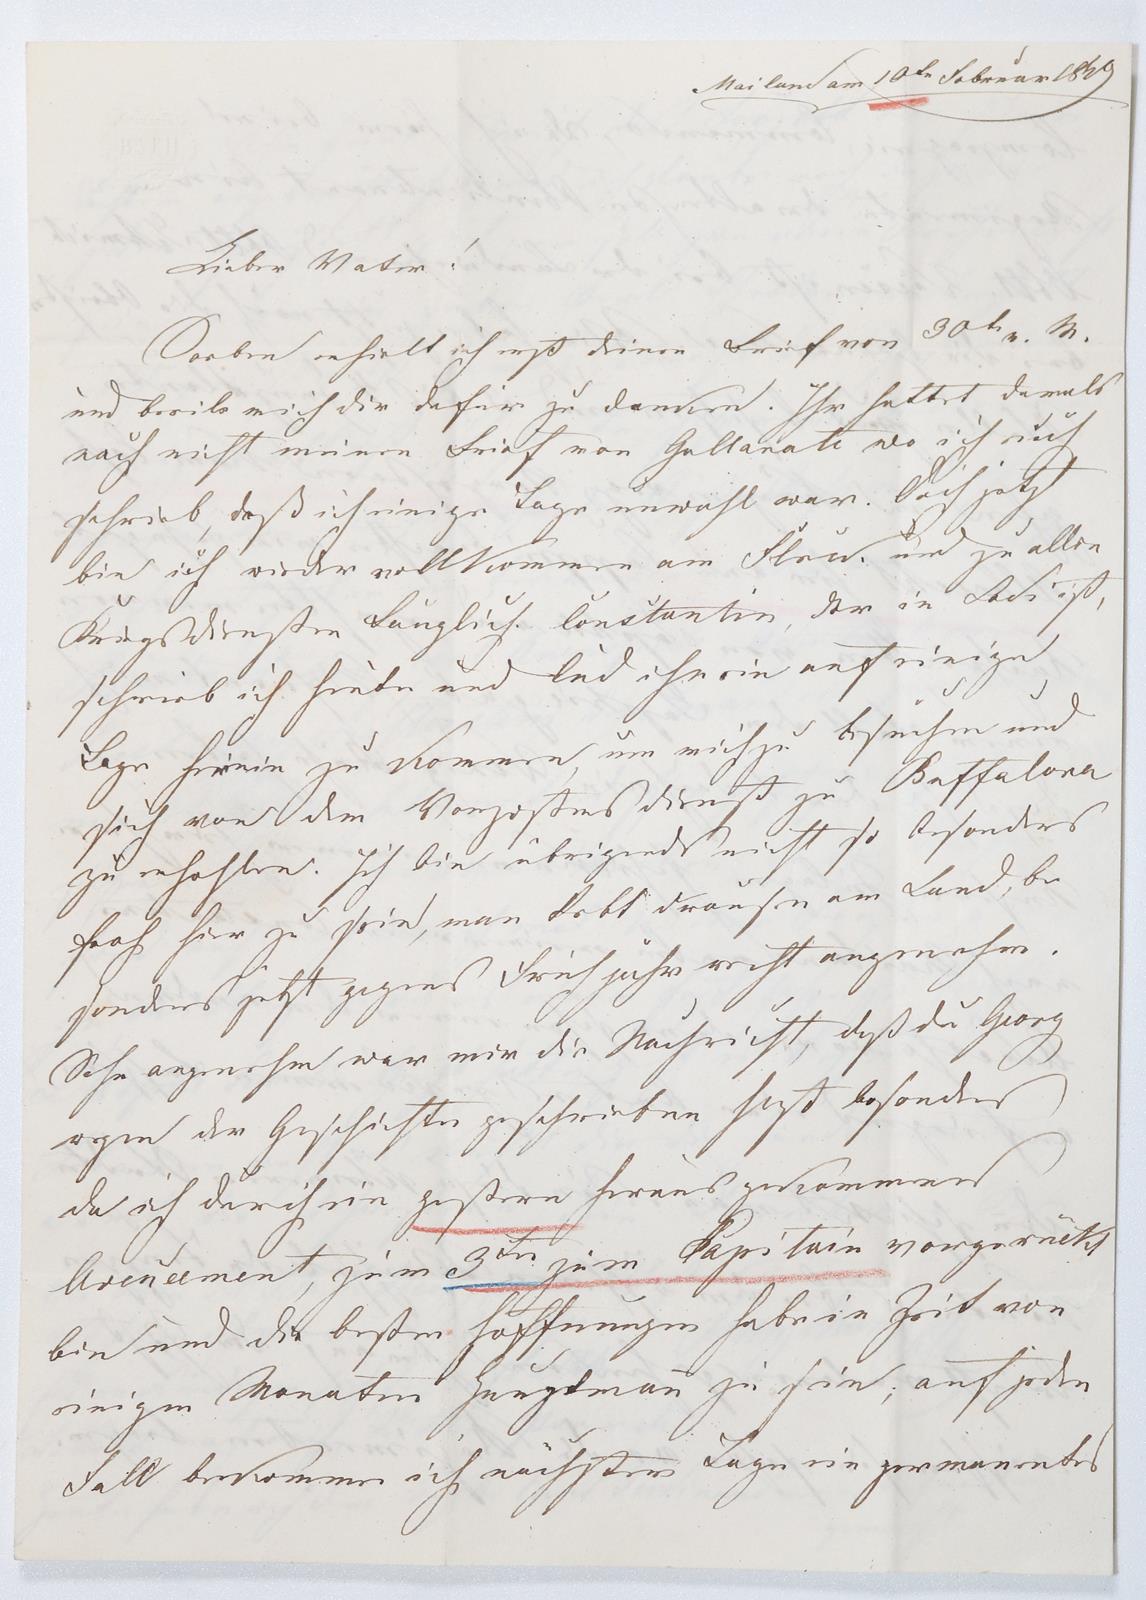 Mailand am 10ten Februar 1849
Lieber Vater!
Soeben erhielt ich erst deinen Brief von 30ten v. M.
und beeile mich dir dafür zu danken. Ihr hattet damals
noch nicht meinen Brief von Gallarate wo ich euch
schrieb, daß ich einige Tage unwohl war. Doch jetzt
bin ich wieder vollkommen am Strich und zu allen
Kriegsdiensten tauglich. Constantin, der in Lodi ist,
schrieb ich heute und lud ihn ein auf einige
Tage herein zu kommen, um mich zu besuchen und
sich von dem Vorpostensdienst zu Buffalora
zu erhohlen. Ich bin übrigends nicht so besonders
froh hier zu sein, man lebt draußen am Land, be
sonders jetzt gegens Frühjahr recht angenehm.
Sehr angenehm war mir die Nachricht, daß du Georg
wegen der Geschichte geschrieben hast besonders
da ich durch ein gestern herausgekommenes
Avencement, zum 3ten zum Kapitain vorgerückt
bin und die besten Hoffnungen habe in Zeit von
einigen Monaten Hauptmann zu sein; auf jeden
Fall bekomme ich nächster Tage ein permanentes